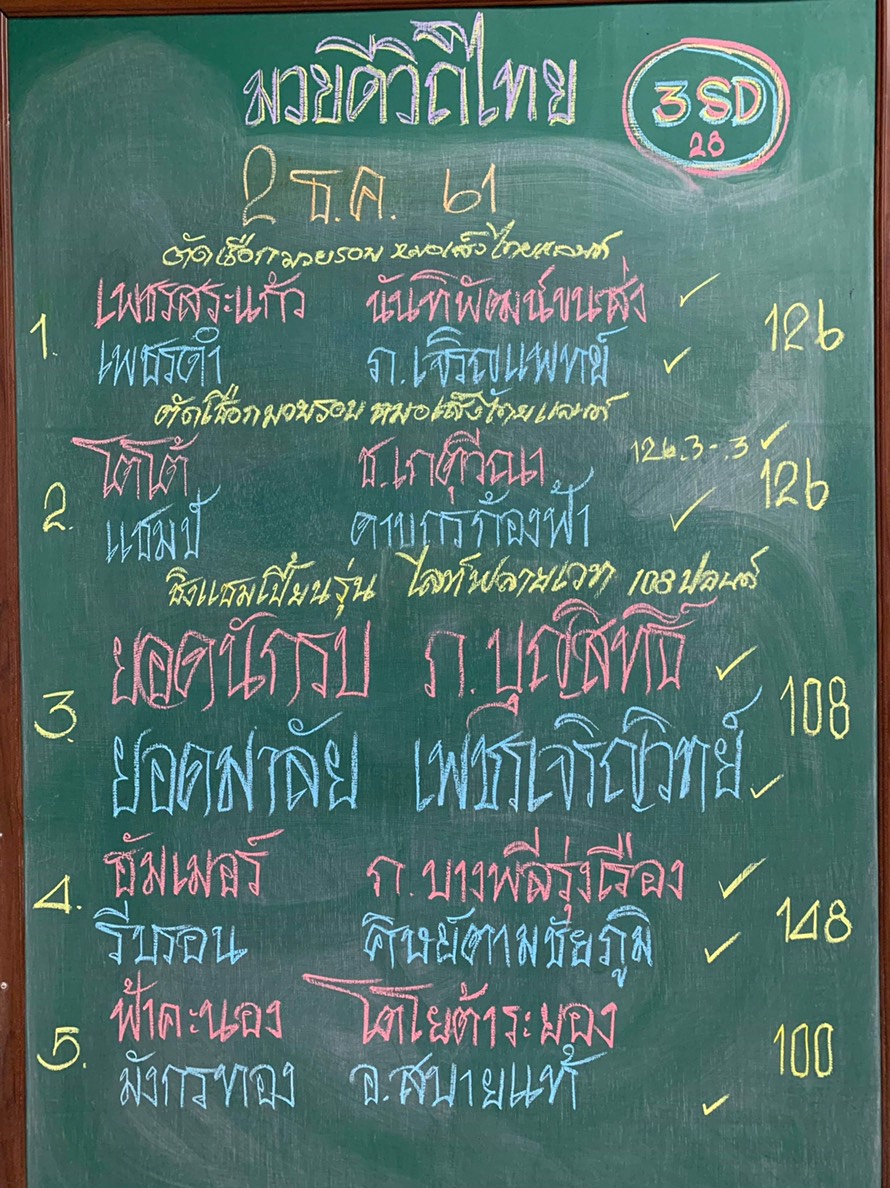 มวยดีวิถีไทย
3SD
28
2 ธ.ค. 61
ตัดเชือกมวยรอบ หมอเส็งไทยแลนด์
1. เพชรสระแก้ว นันทิพัฒน์ขนส่ง ✓ 126
เพชรดำ ภ.เจริญแพทย์ ✓
ตัดเชือกมวยรอบ หมอเส็งไทยแลนด์
2. โตโต้ ช.เกตุวีณา 126.3-.3 ✓ 126
แชมป์ ดาบทรก้องฟ้า ✓
ชิงแชมเปี้ยนรุ่น ไลท์ฟลายเวท 108 ปอนด์
3. ยอดนักรบ ภ.บุญสิทธิ์ ✓ 108
ยอดมาลัย เพชรเจริญวิทย์ ✓
4. ฮัมเมอร์ ภ.บางพลีรุ่งเรือง ✓ 148
รีบรอน ศิษย์ตามชัยภูมิ ✓
5. ฟ้าคะนอง โตโยต้าระยอง 100
มังกรทอง อ.สบายแท้ ✓